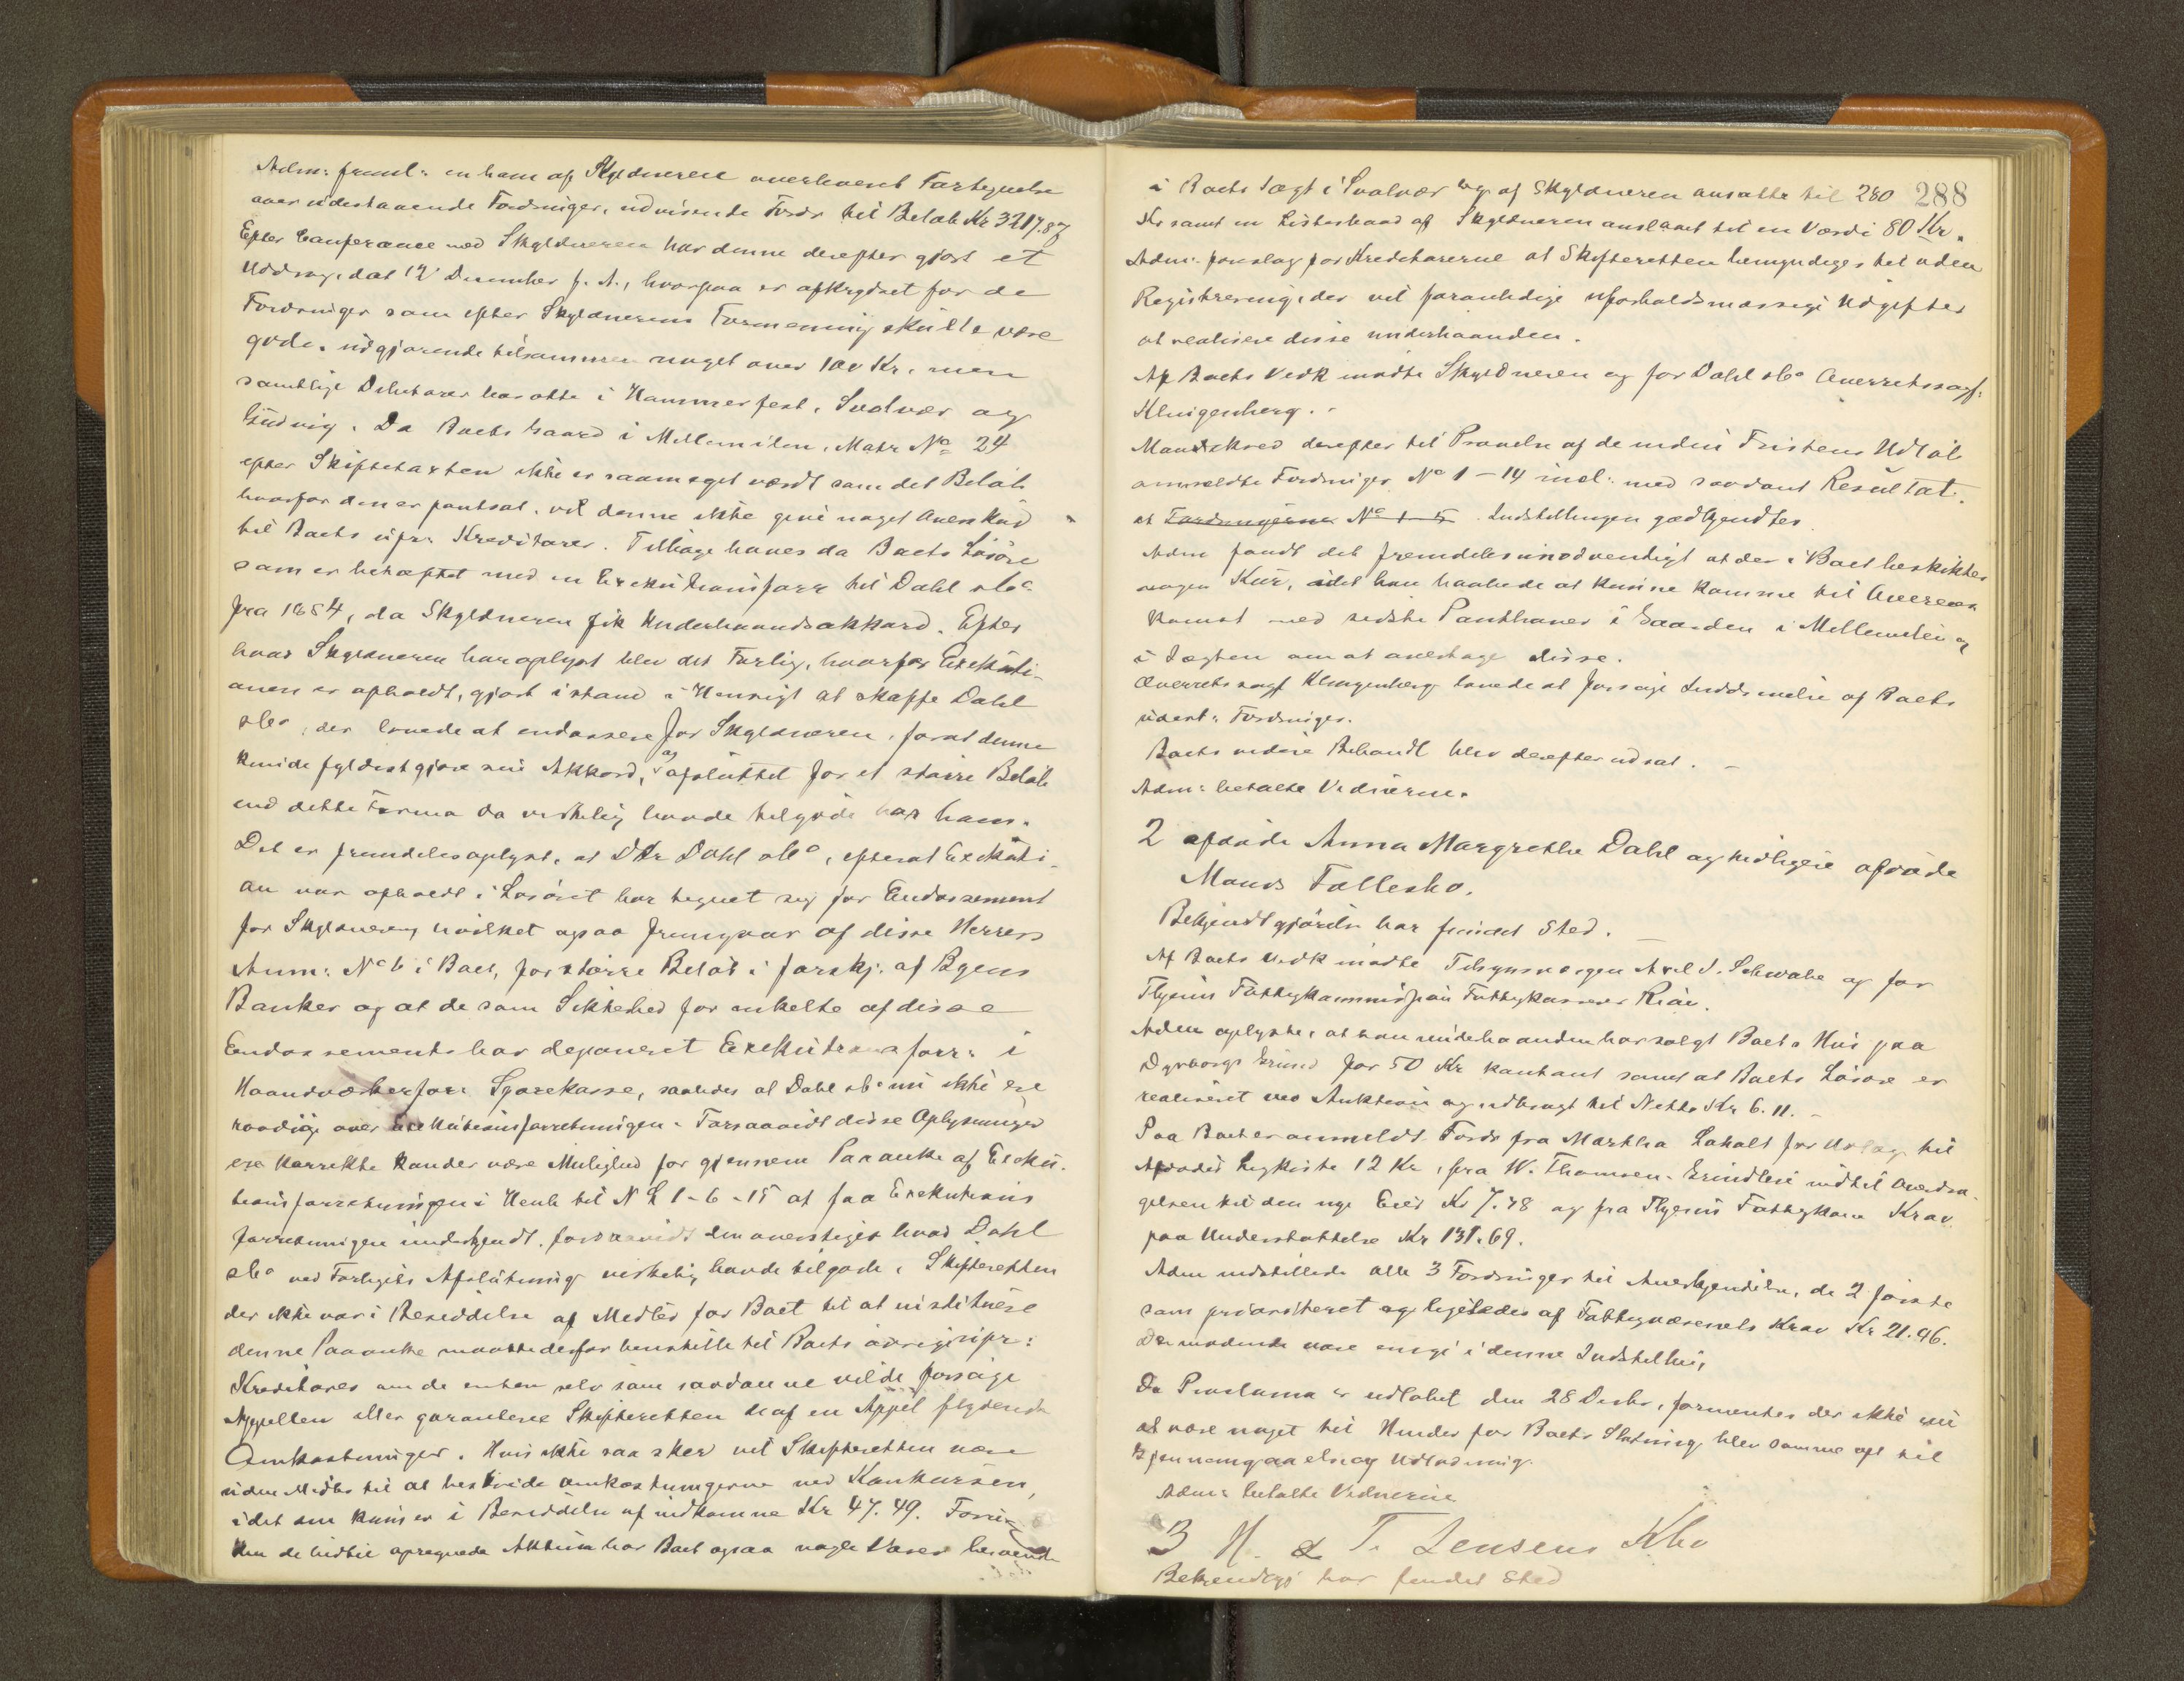 Adm: freml: en ham af Skyldneren overleveret Fortegnelse
over udestaaende Fordringer, udvisende Fordr til Beløb Kr 3217.87
Efter Conferance med Skyldneren har denne derefter gjort et
Uddrag, dat 12 December f. A., hvorpaa er afkrydset for de
Fordringer som efter Skyldnerens Formening skulle være
gode, udgjørende tilsammen noget over 100 Kr, men
samtlige Debitorer bosatte i Hammerfest, Svolvær og
Da Boets Gaard i Mellemilen, Matr No 24
efter Skiftetaxten ikke er saameget værdt som det Beløb
hvorfor den er pantsat, vil denne ikke give noget Overskud
til Boets upr: Kreditorer. Tilbage haves da Boets Løsøre
som er behæftet med en Exekutionsforr til Dahl &co
fra 1884, da Skyldneren fik Underhaandsakkord. Efter
hvad Skyldneren har oplyst blev det Forlig, hvorfor Exekuti-
onen er afholdt, gjort istand i Hensigt at skaffe Dahl
&co, der lovede at endossere for Skyldneren, forat denne
kunde fyldestgjøre sin Akkord, og afsluttet for et større Beløb
end dette Firma da virkelig havde tilgode hos ham.
Det er fremdeles oplyst, at DHr Dahl &co, efterat Exekuti-
on var afholdt i Løsøret har tegnet sig for Endossement
for Skyldneren, hvilket ogsaa fremgaar af disse Herrers
Anm: No 6 i Boet, for større Beløb i forskj. af Byens
Banker og at de som Sikkerhed for enkelte af disse
Endossements har deponeret Exekutionsforr: i
Haandværkerfor: Sparekasse, saaledes at Dahl &co nu ikke ere
raadige over Exekutionsforretningen. Forsaavidt disse Oplysninger
ere korrekte kan der være Mulighed for gjennem Paaanke af Exeku-
tionsforretningen i Henh til N L 1-6-15 at faa Exekutions
forretningen underkjendt, forsaavidt den overstiger hvad Dahl
&co ved Forligets Afslutning virkelig havde tilgode. Skifteretten
der ikke var i Besiddelse af Midler for Boet til at institúere
denne Paaanke maatte derfor henstille til Boets øvrige upr:
Kreditorer om de enten selv som saadanne vilde forsøge
Appellen eller garantere Skifteretten de af en Appel flydende
Omkostninger. Hvis ikke saa sker vil Skifteretten være
uden Midler til at bestride Omkostningerne ved Konkursen,
idet den kun er i Besiddelse af indkomne Kr 47.49. Foru-
den de hidtil opregnede Aktiva har Boet ogsaa nogle Varer beroende
288
i Boets Jægt i Svolvær og af Skyldneren ansatte til 280
Kr samt en Listerbaad af Skyldneren anslaaet til en Værdi 80 Kr.
Adm: forslag for Kreditorerne at Skifteretten bemyndiges til uden
Registrering, der vil foranledige uforholdsmæssige Udgifter
at realisere disse underhaanden.
Af Boets Vedk mødte Skyldneren og for Dahl &co Overretssagf:
Klingenberg. -
Man skred derefter til Prøvelse af de inden Fristens Udløb
anmeldte Fordringer No 1-14 incl: med saadant Resultat,
at Fordringerne No 1-5 Indstillingen godkjendtes
Adm fandt det fremdeles unødvendigt at der i Boet beskikkes
nogen Kur, idet han haabede at kunne komme til Overens
komst med sidste Panthaver i Gaarden i Mellemilen og
i Jægten om at overtage disse.
Overretssagf Klingenberg lovede at forsøge Inddrivelse af Boets
udest: Fordringer.
Boets videre Behandl blev derefter udsat. -
Adm: betalte Vidnerne.
2 afdøde Anna Margrethe Dahl og tidligere afdøde
Mands Fællesbo.
Bekjendtgjørelse har fundet Sted. -
Af Boets Vedk mødte Tilsynsværgen Axel J. Schwabe og for
Thjems Fattigkommission Fattigkasserer
Adm oplyste, at han underhaanden har solgt Boets Hus paa
Dyrborgs Grund for 50 Kr kontant samt at Boets Løsøre er
realiseret ved Auktion og udbragt til Netto Kr 6.11. -
Paa Boet er anmeldt Fordr fra Martha Laholt for Udlæg til
Afdødes Ligkiste 12 Kr, fra W. Thomsen. Grundleie indtil Overdra-
gelsen til den nye Eier Kr 7.48 og fra Thjems Fattigkom Krav
paa Understøttelse Kr 131.69.
Adm indstillede alle 3 Fordringer til Anerkjendelse, de 2 første
som prioriteret og ligeledes af Fattigvæsenets Krav Kr 21.96.
De mødende vare enige i denne Indstilling.
Da Proclama er udløbet den 28 Decbr, formentes der ikke nu
at være noget til Hinder for Boets Slutning, blev samme opt til
Gjennemgaaelse og Udlodning.
Adm: betalte Vidnerne
3 H. & T. Jensens Kbo
Bekjendtgj har fundet Sted